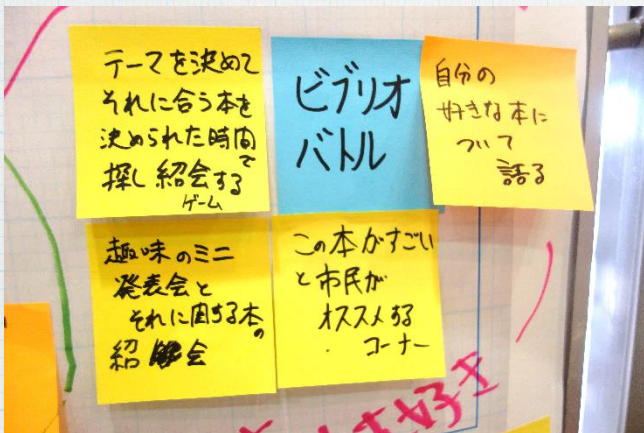 テーマを決めて
それに合う本を
決められた時間で
探し紹会する
ゲーム
ビブリオ
バトル
自分の
好きな本に
ついて
語る
趣味のミニ
発表会と
それに関する本の
紹会
この本がすごい
と市民が
オススメする
コーナー
好き